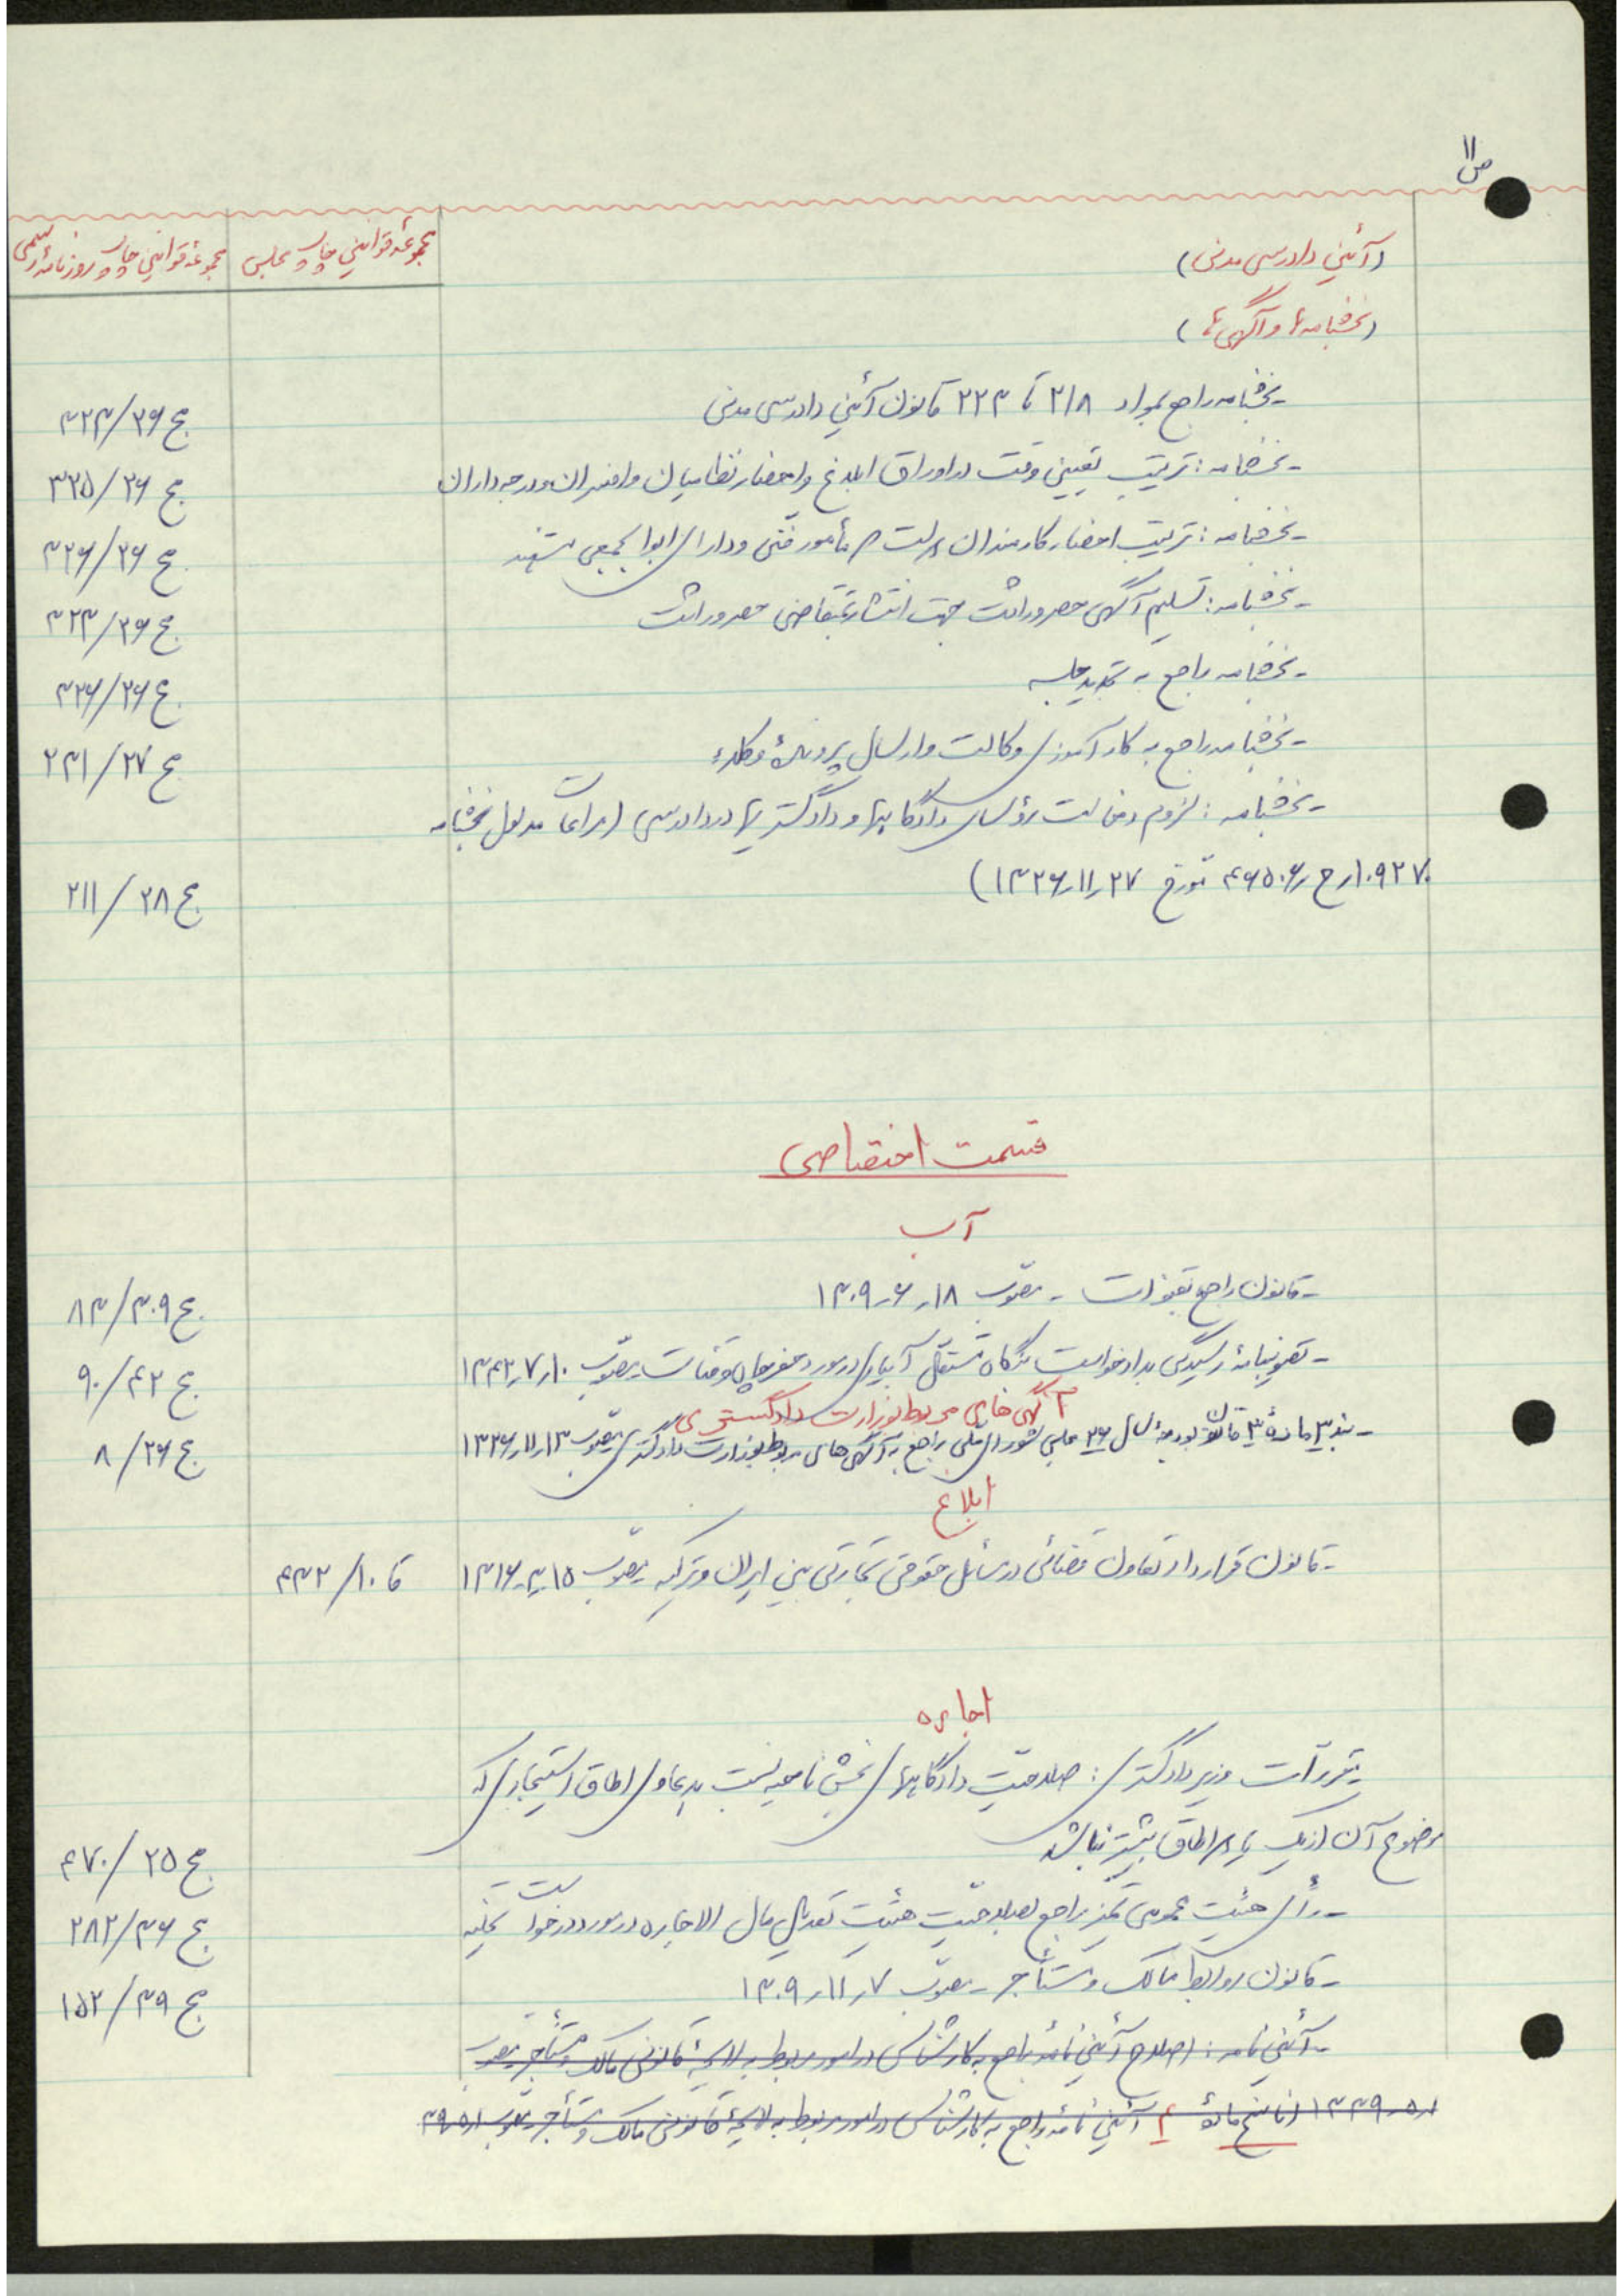 ص ۱۱
(آئین دادرسی مدنی) مجموعه قوانین چاپ مجلس مجموعه قوانین چاپ روزنامه رسمی
(بخشنامه‌ها و آگهی‌ها)
- بخشنامه راجع بمواد ۲۱۸ تا ۲۲۳ قانون آئین دادرسی مدنی ج ۲۶/۳۲۳
- بخشنامه: ترتیب تعیین وقت در اوراق ابلاغ و احضار نظامیان و افسران و درجه‌داران ج ۲۶/۳۲۵
- بخشنامه: ترتیب احضار کارمندان دولت که مأمور فنی و دارای ابوابجمعی هستند ج ۲۶/۳۲۶
- بخشنامه: تسلیم آگهی حصر وراثت جهت انتشار بمتقاضی حصر وراثت ج ۲۶/۳۲۳
- بخشنامه راجع به تجدید جلسه ج ۲۶/۳۲۶
- بخشنامه راجع به کارآموزی وکالت و ارسال پروندۀ وکلاء ج ۲۷/۲۳۱
- بخشنامه: لزوم دخالت رؤسای دادگاهها و دادگستریها در دادرسی (مراعات مدلول بخشنامه
۱۰۹۲۷۰/ح/۴۶۵۰۶ مورخ ۲۷ر۱۱ر۱۳۲۶) ج ۲۸/۲۱۱
قسمت اختصاصی
آب
- قانون راجع بقنوات - مصوب ۱۸ر۶ر۱۳۰۹ ج ۳۰۹/۸۳
- تصویبنامۀ رسیدگی بدادخواست بنگاه مستقل آبیاری در مورد حفر چاه و قنات - مصوب ۱۰ر۷ر۱۳۴۲ ج ۴۲/۹۰
آگهی‌های مربوط بوزارت دادگستری
- بند ۳ مادۀ ۳ قانون بودجۀ سال ۲۶ مجلس شورای ملی راجع به آگهی‌های مربوط بوزارت دادگستری مصوب ۱۳ر۱۱ر۱۳۲۶ ج ۲۶/۸
ابلاغ
- قانون قرارداد تعاون قضائی در مسائل حقوقی تجارتی بین ایران و ترکیه - مصوب ۱۵ر۳ر۱۳۱۶ قا ۱۰/۴۳۲
اجاره
- مقررات وزیر دادگستری: صلاحیت دادگاههای بخش ناحیه نسبت بدعاوی اطاق استیجاری که
موضوع آن از یک یا دو اطاق بیشتر نباشد ج ۲۵/۴۷۰
- رأی هیئت عمومی تمیز راجع بصلاحیت هیئت تعدیل مال الاجاره در مورد درخواست تخلیه ج ۳۶/۲۸۲
- قانون روابط مالک و مستأجر - مصوب ۷ر۱۱ر۱۳۰۹ ج ۳۹/۱۵۲
- آئین نامه: اصلاح آئین نامۀ راجع به کارشناسی در امور مربوط به لایحۀ قانونی مالک و مستأجر مصوب
۱ر۵ر۱۳۳۹ (ناسخ مادۀ ۴ آئین نامۀ راجع به کارشناسی در امور مربوط به لایحۀ قانونی مالک و مستأجر مصوب